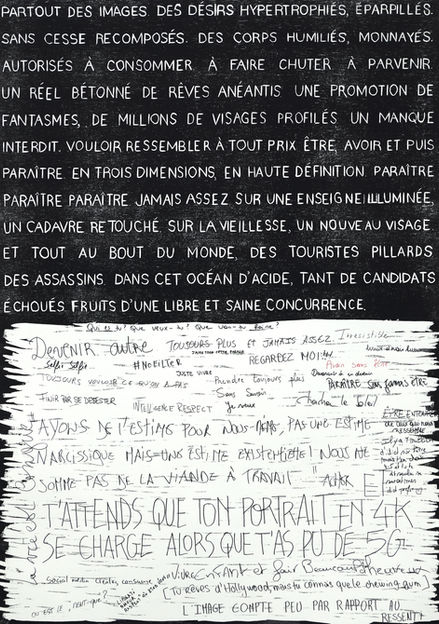 PARTOUT DES IMAGES. DES DÉSIRS HYPERTROPHIÉS, ÉPARPILLÉS.
SANS CESSE RECOMPOSÉS. DES CORPS HUMILIÉS, MONNAYÉS.
AUTORISÉS À CONSOMMER. À FAIRE CHUTER. À PARVENIR.
UN RÉEL BÉTONNÉ DE RÊVES ANÉANTIS. UNE PROMOTION DE
FANTASMES, DE MILLIONS DE VISAGES PROFILÉS. UN MANQUE
INTERDIT. VOULOIR RESSEMBLER À TOUT PRIX. ÊTRE, AVOIR ET PUIS
PARAÎTRE. EN TROIS DIMENSIONS, EN HAUTE DÉFINITION. PARAÎTRE
PARAÎTRE PARAÎTRE. JAMAIS ASSEZ. SUR UNE ENSEIGNE ILLUMINÉE,
UN CADAVRE RETOUCHÉ. SUR LA VIEILLESSE, UN NOUVEAU VISAGE.
ET TOUT AU BOUT DU MONDE, DES TOURISTES PILLARDS
DES ASSASSINS. DANS CET OCÉAN D'ACIDE, TANT DE CANDIDATS
ÉCHOUÉS. FRUITS D'UNE LIBRE ET SAINE CONCURRENCE.
Qui es-tu? Que veux-tu? Que vas-tu faire?
Devenir autre
TOUJOURS PLUS ET JAMAIS ASSEZ.
Irrésistible
Selfie Selfie
#NOFILTER
REGARDEZ MOI
JUSTE VIVRE
Avoir sans
TOUJOURS VOULOIR CE QU'ON A PAS
Prendre toujours plus
PARAÎTRE Sans jamais être
FINIR PAR SE DÉTESTER
Sans Savoir
INTELLIGENCE RESPECT
"AYONS DE L'ESTIME POUR NOUS-MÊMES, PAS UNE ESTIME
NARCISSIQUE MAIS UNE ESTIME EXISTENTIELLE! NOUS NE
SOMME PAS DE LA VIANDE À TRAVAIL"
T'ATTENDS QUE TON PORTRAIT EN 4K
SE CHARGE ALORS QUE T'AS PU DE 5G
Social media create, consume
VIVRE CONTENT et fair Beaucoup d'heureux
[Tu rêves d'Hollywood, mais tu connais que le chewing gum]
OÙ EST LE
L'IMAGE COMPTE PEU PAR RAPPORT AU
RESSENTI